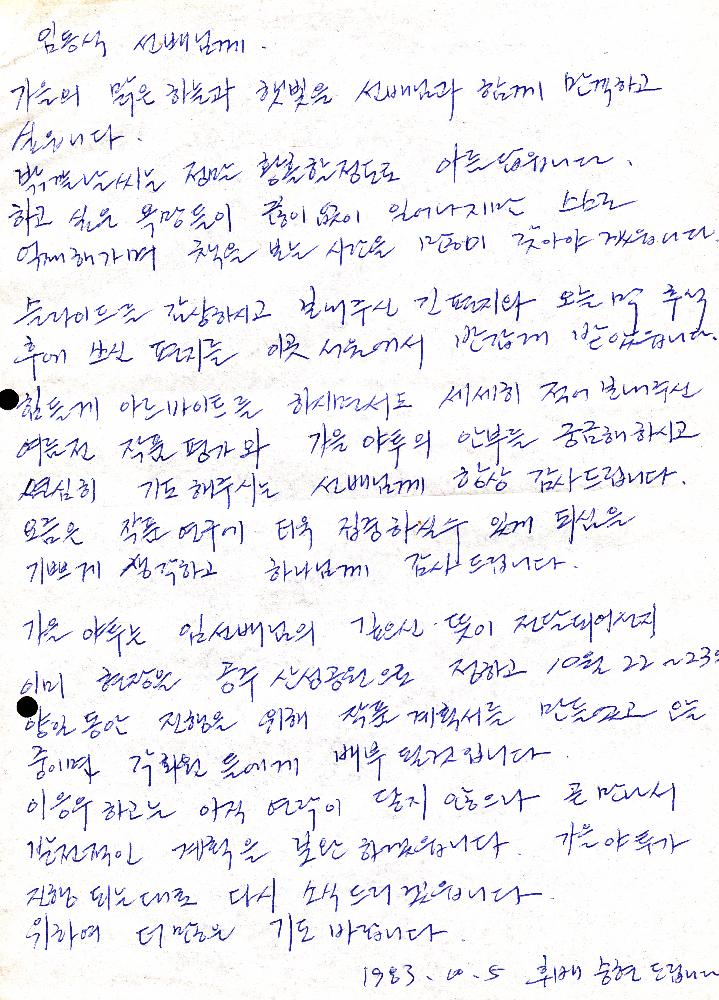 임동식 선배님께.
가을의 맑은 하늘과 햇빛을 선배님과 함께 만끽하고
싶읍니다.
바깥날씨는 정말 황홀할정도로 아름답습니다.
하고 싶은 욕망들이 끝이없이 일어나지만 스스로
억제해가며 책을 보는 시간을 많이 갖아야 겠읍니다.
슬라이드를 감상하시고 보내주신 긴 편지와 오늘 막 추석
후에 쓰신 편지를 이곳 서울에서 반갑게 받았읍니다.
힘들게 아르바이트를 하시면서도 세세히 적어 보내주신
여름전 작품평가와 가을 야투의 안부를 궁금해하시고
열심히 기도해주시는 선배님께 항상 감사드립니다.
요즘은 작품연구에 더욱 집중하실수 있게 되심을
기쁘게 생각하고 하나님께 감사드립니다.
가을 야투는 임선배님의 깊으신 뜻이 전달되어선지
이미 현장을 공주 산성공원으로 정하고 10월 22~23일
양일동안 진행을 위해 작품 계획서를 만들었고 오늘
중이면 각회원들에게 배부 될것입니다.
이응우하고는 아직 연락이 닿지 않으나 곧 만나서
발전적인 계획을 보완하겠읍니다. 가을야투가
진행 되는대로 다시 소식드리겠읍니다.
위하여 더 많은 기도 바랍니다.
1983. 10. 5 후배 승현 드립니다